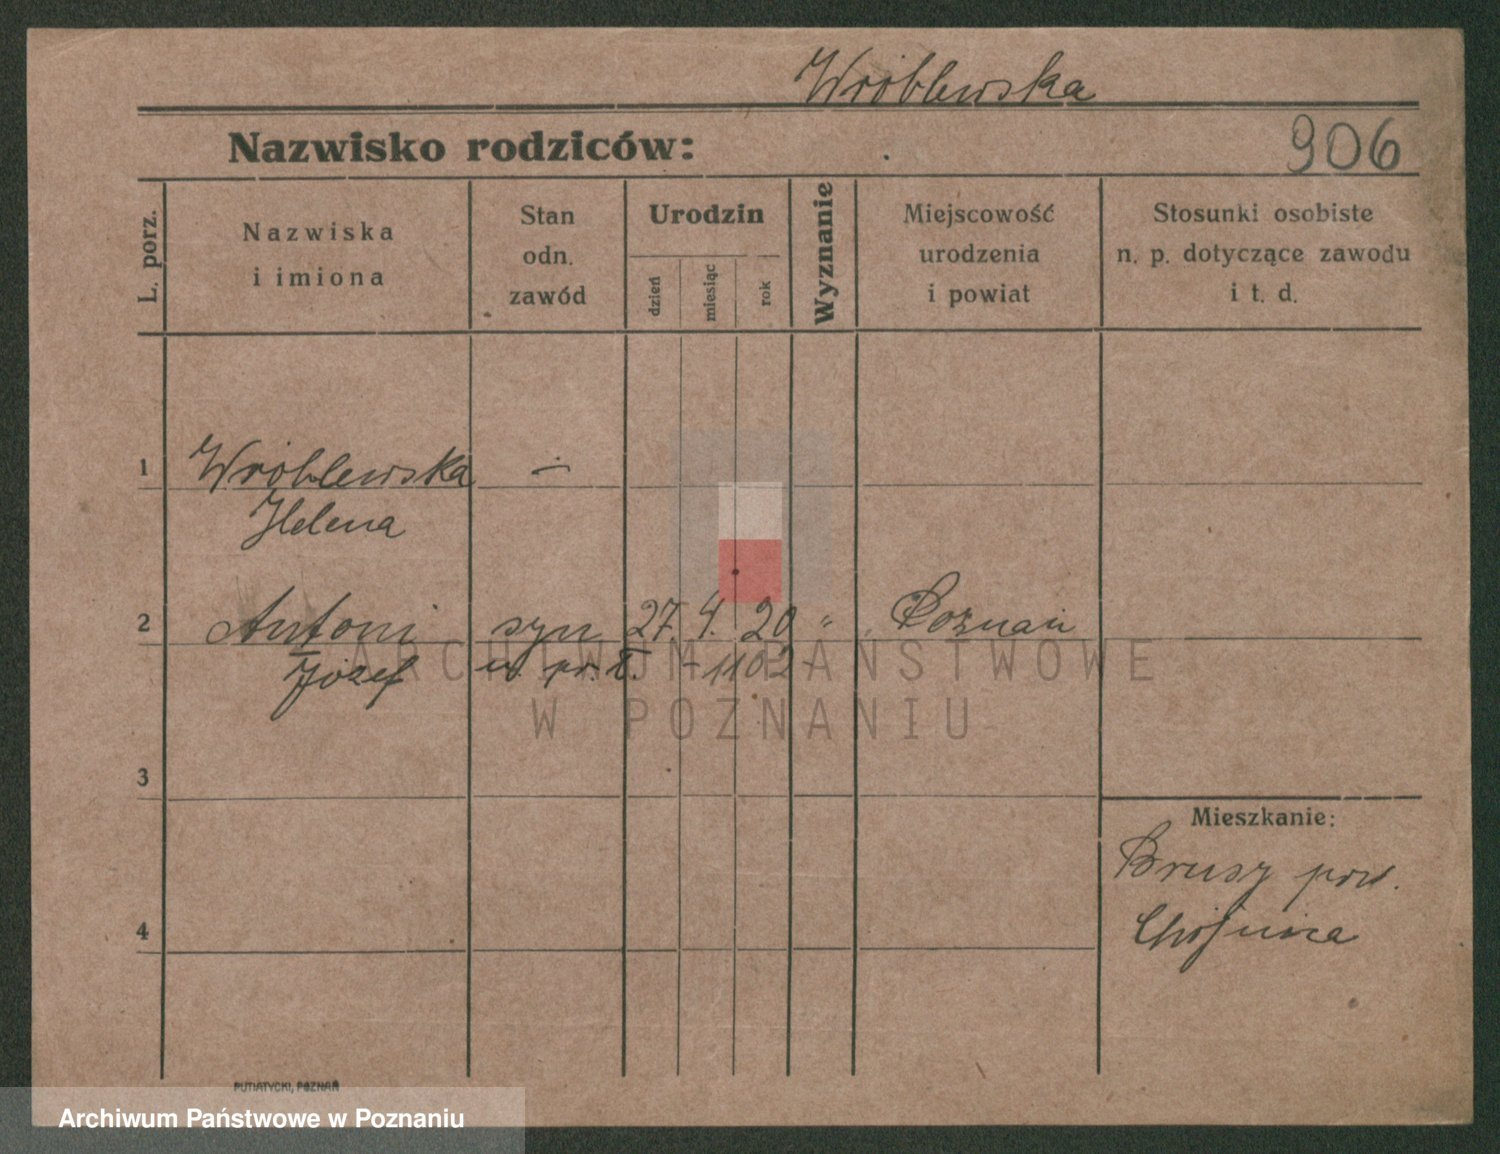 Wróblewska
Nazwisko rodziców:
906
L. porz.
Nazwiska
i imiona
Stan
odn.
zawód
Urodzin
dzień
miesiąc
rok
Wyznanie
Miejscowość
urodzenia
i powiat
Stosunki osobiste
n. p. dotyczące zawodu
i t. d.
1 Wróblewska —
Helena
2 Antoni syn 27. 4. 20 " Poznań
Józef 1102
ARCHIWUM PAŃSTWOWE
W POZNANIU
3
Mieszkanie:
Brusy pow.
4 Chojnice
PUTIATYCKI, POZNAŃ
Archiwum Państwowe w Poznaniu